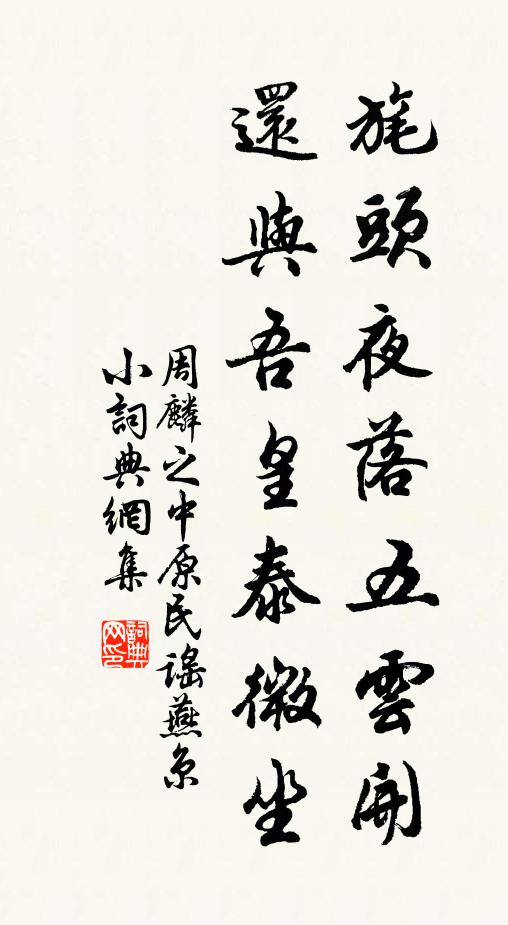 旄頭夜落五雲開
還與吾皇泰微坐
周麟之中原民謠燕京
小詞典網集
詞典
网印